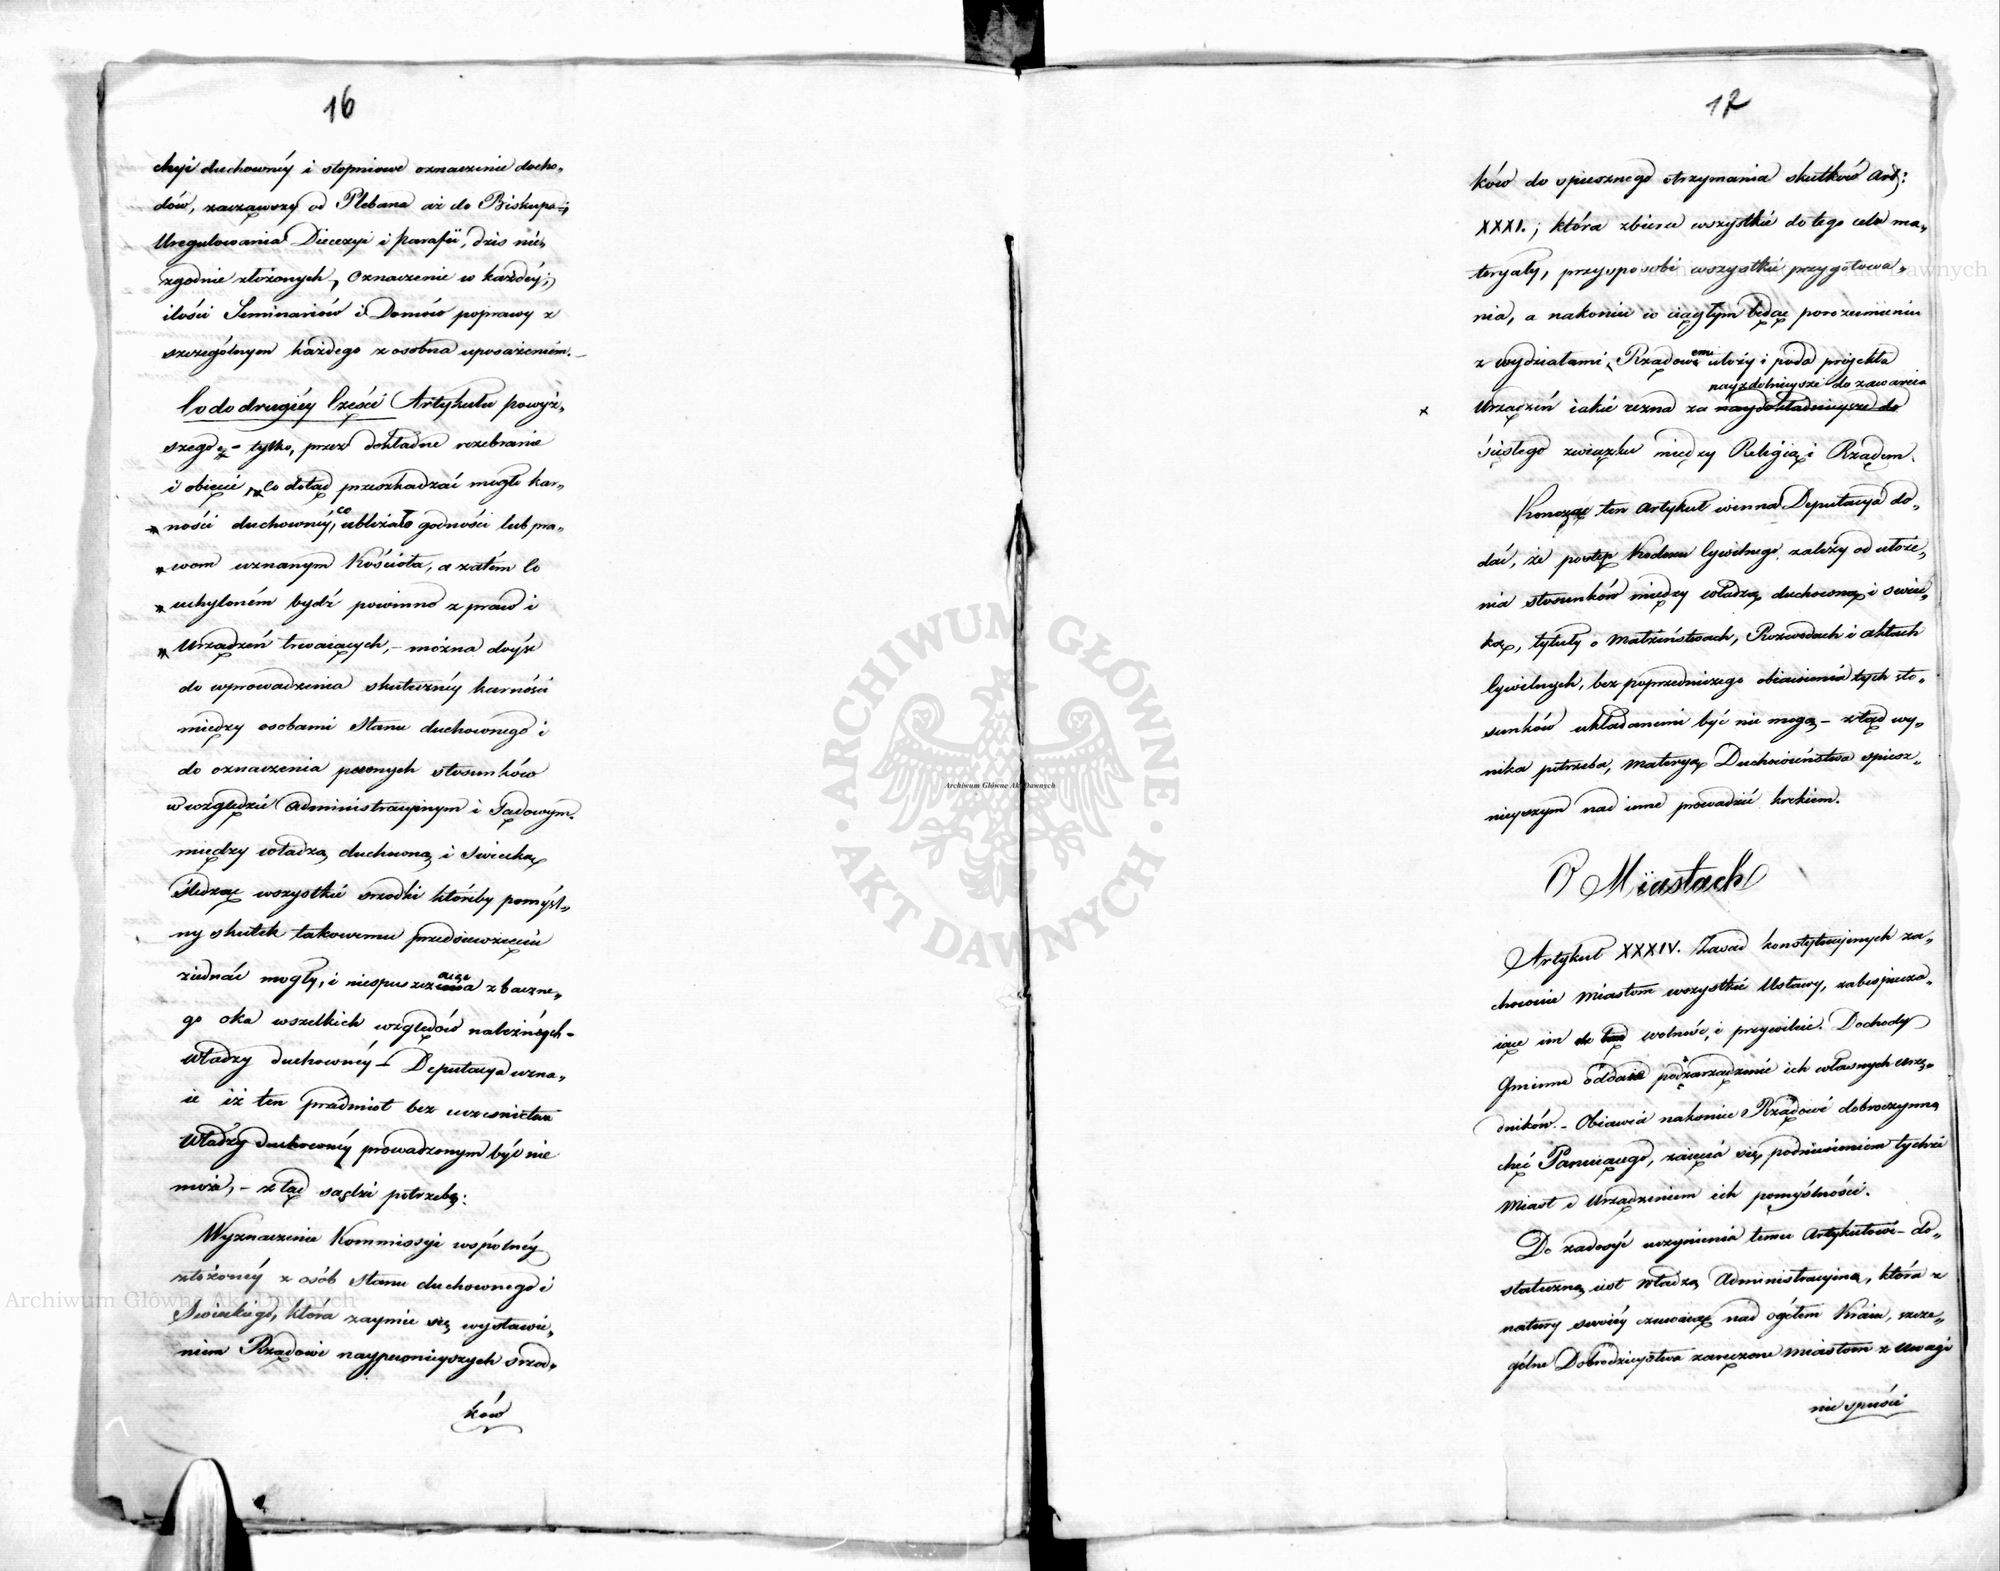 16
chyi duchownéy i stopniowe oznaczenie docho-
dów, zacząwszy od Plebana aż do Biskupa;
Uregulowania Diecezyi i parafii, dziś nie-
zgodnie złożonych, Oznaczenie w każdéy;
ilości Seminariów i Domów poprawy z
szczególnym każdego z osobna uposażeniém.
Co do drugiéy Części Artykułu powyż-
szego - tylko, przez dokładne rozebranie
i obięcie, Co dotąd przeszkadzać mogło kar-
ności duchownéy, co ubliżało godności lub pra-
wom uznanym Kościoła, a zatém Co
uchyloném bydź powinno z praw i
Urządzeń trwaiących, - można dóyść
do wprowadzenia skutecznéy karności
między osobami Stanu duchownego i
do oznaczenia pewnych stosunków
w względzie Administracyinym i Sądowym.
między władzą duchowną i Swiecką
Śledząc wszystkie srzodki któreby pomyśl-
ny skutek takowemu przedsiewzięciu
ziednać mogły, i niespuszczaiąc z baczne-
go oka wszelkich względów należnych
władzy duchownéy - Deputacya uzna-
ie iż ten przedmiot bez uczesnictwa
Władzy duchownéy prowadzonym być nie
może, - ztąd sądzi potrzebę:
Wyznaczenie Kommissyi wspólnéy
złożonéy z osób Stanu duchownego i
Swieckiego, która zaymie się wystawie-
niem Rządowi naypewnieyszych srzod-
ków
17
ków do spiesznego otrzymania skutków Art:
XXXI.; która zbierze wszystkie do tego celu ma-
teryały, przysposobi wszystkie przygotowa-
nia, a nakoniec w ciągłym będąc porozumieniu
z wydziałami Rządowemi ułoży i poda projekta
nayzdolnieysze do zawarcia
× Urządzeń iakie uzna za naydokładnieysze do
ścisłego związku między Religią i Rządem.
Kończąc ten Artykuł winna Deputacya do-
dać, że postęp Kodexu Cywilnego zależy od ułoże-
nia stosunków między władzą duchowną i swiec-
ką, tytuły o Małżeństwach, Rozwodach i aktach
Cywilnych, bez poprzedniczego obiaśnienia tych sto-
sunków układanemi być nie mogą - ztąd wy-
nika potrzeba, materyą Duchowieństwa spiesz-
nieyszym nad inne prowadzić krokiem.
O Miastach
Artykuł XXXIV. Zasad konstytucyinych za-
chowuie Miastom wszystkie Ustawy, zabespiecza-
iące im wolność i przywileie. Dochody
Gminne oddaie pod zarządzenie ich własnych urzę-
dników. - Obiawia nakoniec Rządowi dobroczynną
chęć Panuiącego, zaięcia się podniesieniem tychże
Miast i Urządzeniem ich pomyślności.
Do zadosyć uczynienia temu Artykułowi - do-
stateczną iest Władza Administracyina, która z
natury swoiéy czuwaiąc nad ogółem Kraiu, szcze-
gólne Dobrodzieystwa zaręczone Miastom z Uwagi
nie spuści